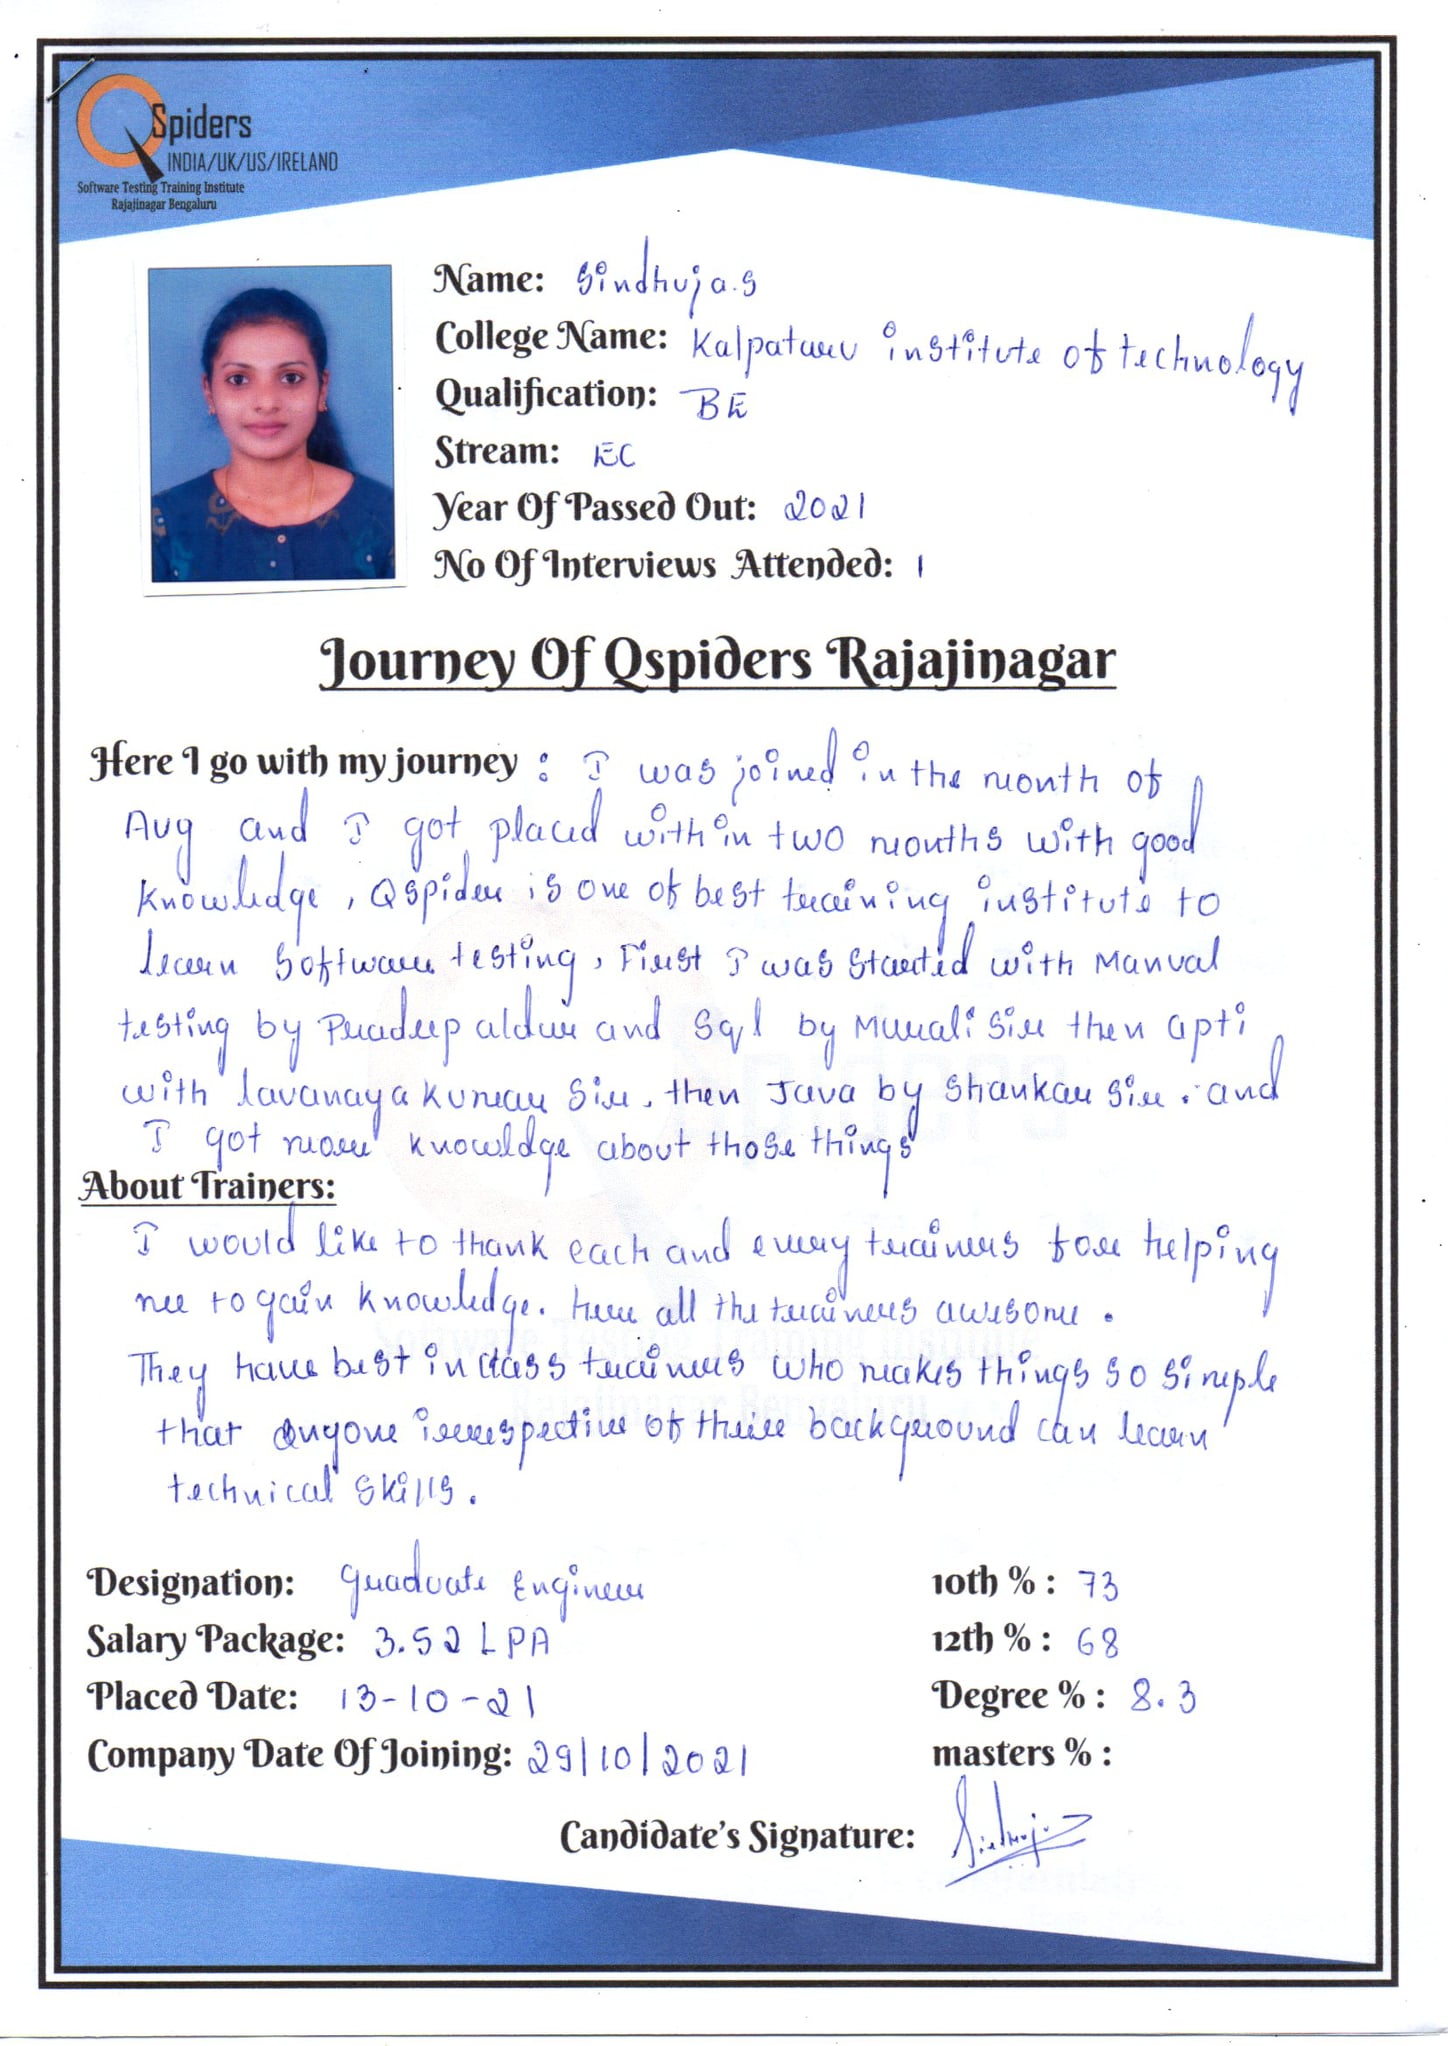 QSpiders
INDIA/UK/US/IRELAND
Software Testing Training Institute
Rajajinagar Bengaluru
Name: Sindhuja.S
College Name: Kalpataru institute of technology
Qualification: BE
Stream: EC
Year Of Passed Out: 2021
No Of Interviews Attended: 1
Journey Of Qspiders Rajajinagar
Here I go with my journey : I was joined in the month of
Aug and I got placed within two months with good
knowledge, Qspider is one of best training institute to
learn software testing, First I was started with Manual
testing by Pradeep and Sql by Murali Sir then apti
with lavanaya kumar Sir. then Java by Shankar Sir. and
I got more knowldge about those things
About Trainers:
I would like to thank each and every trainers for helping
me to gain knowledge. here all the trainers awesome.
They have best in class trainers who makes things so simple
that anyone irrespective of their background can learn
technical skills.
Designation: Graduate Engineer
10th % : 73
Salary Package: 3.52 LPA
12th % : 68
Placed Date: 13-10-21
Degree % : 8.3
Company Date Of Joining: 29/10/2021
masters % :
Candidate's Signature: Sindhuja